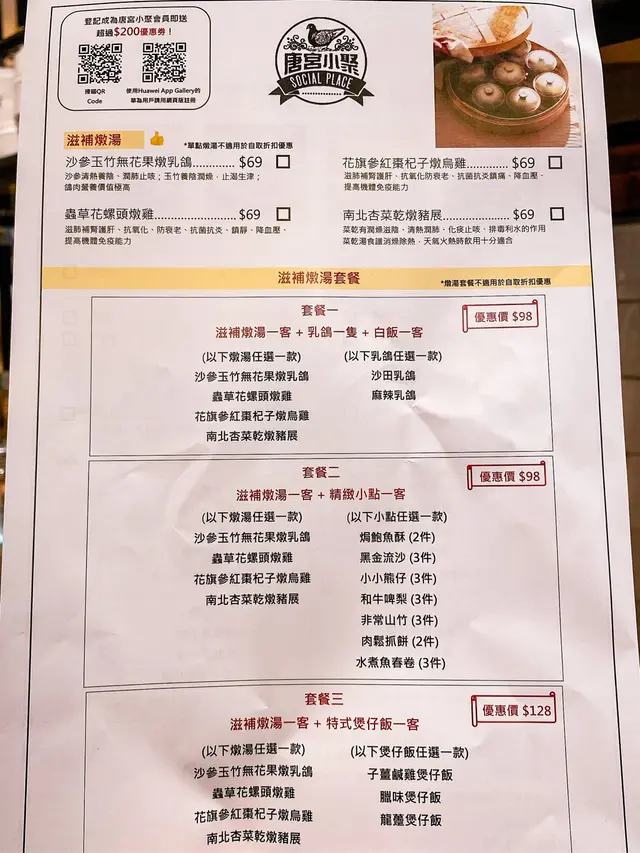 登記成為唐宮小聚會員即送
超過$200優惠券！
掃瞄QR
Code
使用Huawei App Gallery的
華為用戶請用網頁版註冊
唐宮小聚
SOCIAL PLACE
滋補燉湯
*單點燉湯不適用於自取折扣優惠
沙參玉竹無花果燉乳鴿............. $69
沙參清熱養陰、潤肺止咳；玉竹養陰潤燥，止渴生津；
鴿肉營養價值極高
花旗參紅棗杞子燉烏雞............ $69
滋肺補腎護肝、抗氧化防衰老、抗菌抗炎鎮痛、降血壓、
提高機體免疫能力
蟲草花螺頭燉雞........................ $69
滋肺補腎護肝、抗氧化、防衰老、抗菌抗炎、鎮靜、降血壓、
提高機體免疫能力
南北杏菜乾燉豬展.................... $69
菜乾有潤燥滋陰、清熱潤肺、化痰止咳、排毒利水的作用
菜乾湯食譜消燥除熱，天氣火熱時飲用十分適合
滋補燉湯套餐
*燉湯套餐不適用於自取折扣優惠
套餐一
優惠價 $98
滋補燉湯一客 + 乳鴿一隻 + 白飯一客
(以下燉湯任選一款) (以下乳鴿任選一款)
沙參玉竹無花果燉乳鴿 沙田乳鴿
蟲草花螺頭燉雞 麻辣乳鴿
花旗參紅棗杞子燉烏雞
南北杏菜乾燉豬展
套餐二
優惠價 $98
滋補燉湯一客 + 精緻小點一客
(以下燉湯任選一款) (以下小點任選一款)
沙參玉竹無花果燉乳鴿 焗鮑魚酥 (2件)
蟲草花螺頭燉雞 黑金流沙 (3件)
花旗參紅棗杞子燉烏雞 小小熊仔 (3件)
南北杏菜乾燉豬展 和牛啤梨 (3件)
非常山竹 (3件)
肉鬆抓餅 (2件)
水煮魚春卷 (3件)
套餐三
優惠價 $128
滋補燉湯一客 + 特式煲仔飯一客
(以下燉湯任選一款) (以下煲仔飯任選一款)
沙參玉竹無花果燉乳鴿 子薑鹹雞煲仔飯
蟲草花螺頭燉雞 臘味煲仔飯
花旗參紅棗杞子燉烏雞 龍躉煲仔飯
南北杏菜乾燉豬展